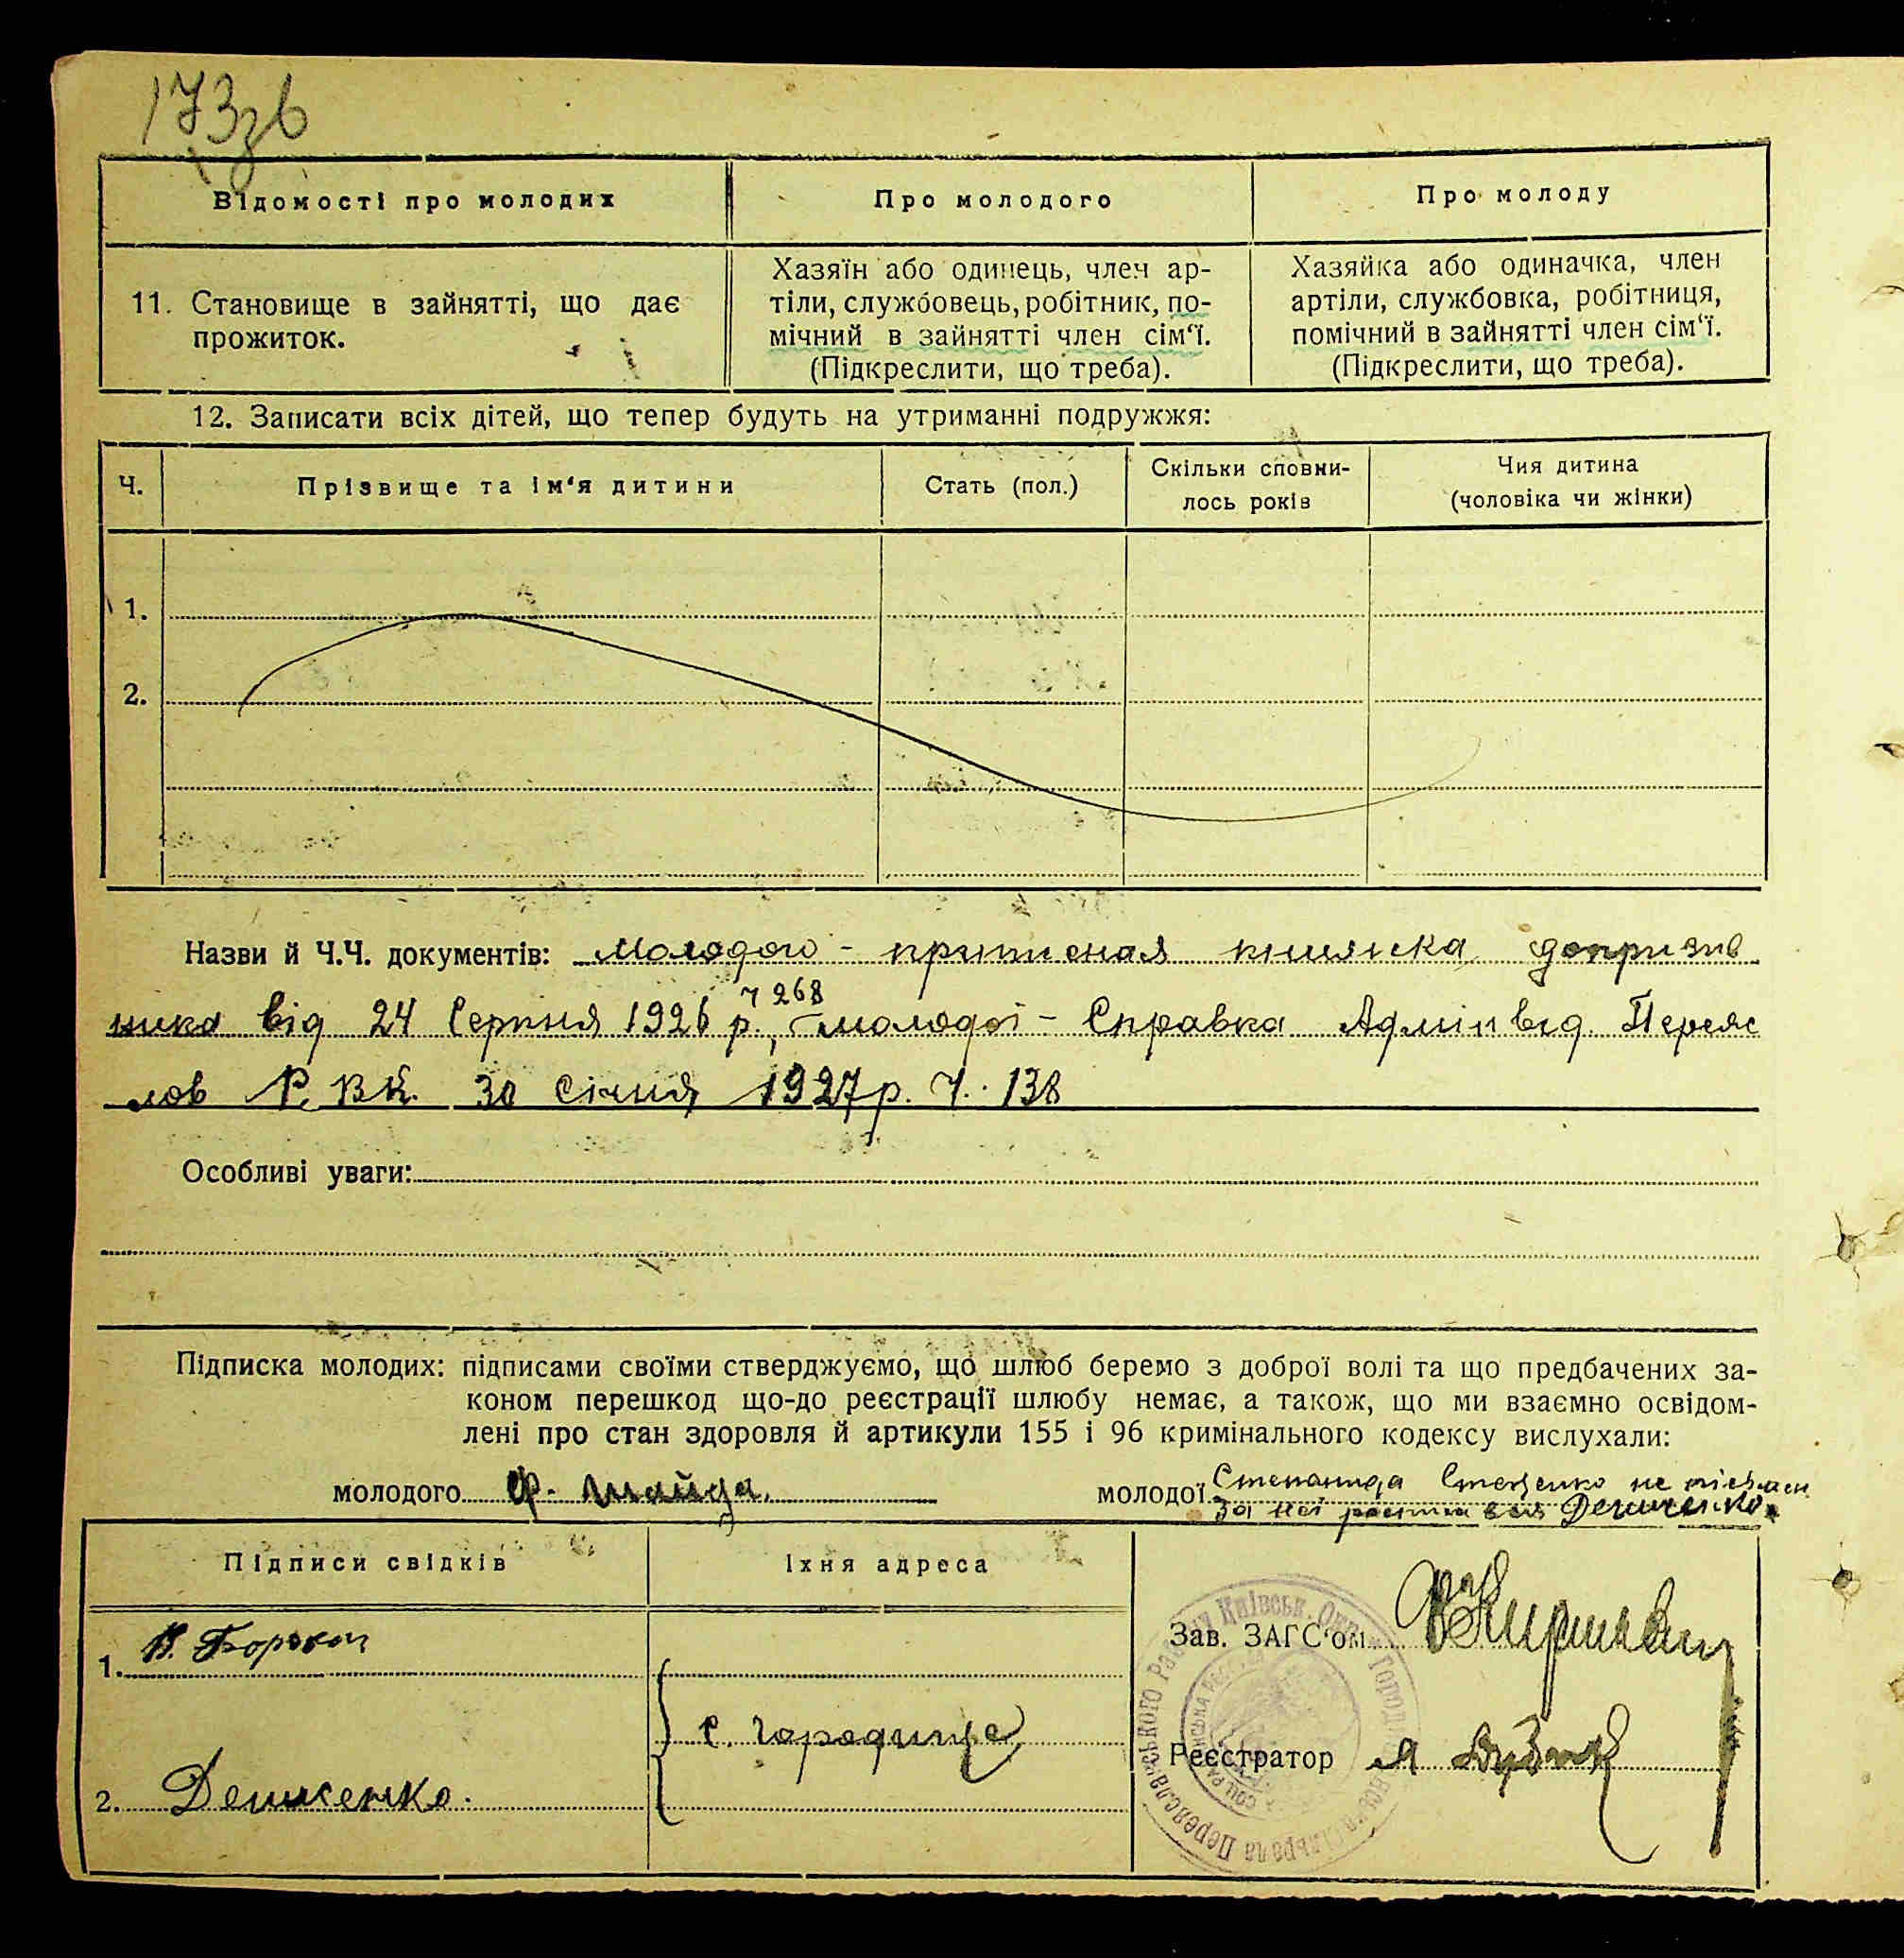 173зв
Відомості про молодих
Про молодого
Про молоду
11. Становище в зайнятті, що дає
прожиток.
Хазяїн або одинець, член ар-
тіли, службовець, робітник, по-
мічний в зайнятті член сім‘ї.
(Підкреслити, що треба).
Хазяйка або одиначка, член
артіли, службовка, робітниця,
помічний в зайнятті член сім‘ї.
(Підкреслити, що треба).
12. Записати всіх дітей, що тепер будуть на утриманні подружжя:
Ч.
Прізвище та ім‘я дитини
Стать (пол.)
Скільки сповни-
лось років
Чия дитина
(чоловіка чи жінки)
1.
2.
Назви й Ч.Ч. документів: Молодого - приписная книжка допризив
ника від 24 Серпня 1926 р. ч 268, молодої - Справка Адмінвід. Переяс
лов Р.В.К. 30 Січня 1927 р. Ч. 138
Особливі уваги:
Підписка молодих: підписами своїми стверджуємо, що шлюб беремо з доброї волі та що предбачених за-
коном перешкод що-до реєстрації шлюбу немає, а також, що ми взаємно освідом-
лені про стан здоровля й артикули 155 і 96 кримінального кодексу вислухали:
молодого Ф. Шайда.
молодої Степанида Стеценко не
За неї Денисенко
Підписи свідків
Їхня адреса
1. В.
с. Городище
2. Денисенко.
Зав. ЗАГС‘ом
Реєстратор